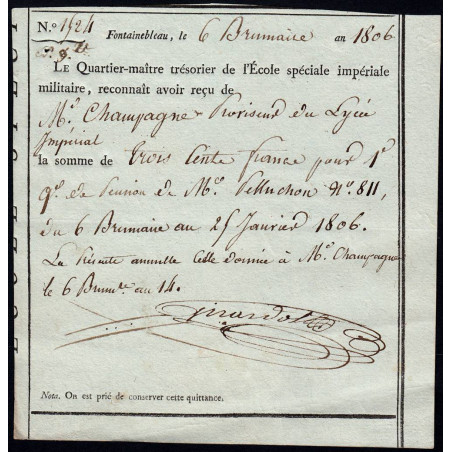 N.º 1524
Fontainebleau, le 6 Brumaire an 1806
Le Quartier-maître trésorier de l'École spéciale impériale
militaire, reconnaît avoir reçu de
Mr. Champagne Proviseur du Lycée
Impérial
la somme de trois Cents francs pour 1er
qer de Pension de Mr. Pelluchon Nº. 811,
du 6 Brumaire au 25 Janvier 1806.
La Présente annulle Celle donnée à Mr. Champagne
le 6 Brumre an 14.
Girardot
Nota. On est prié de conserver cette quittance.